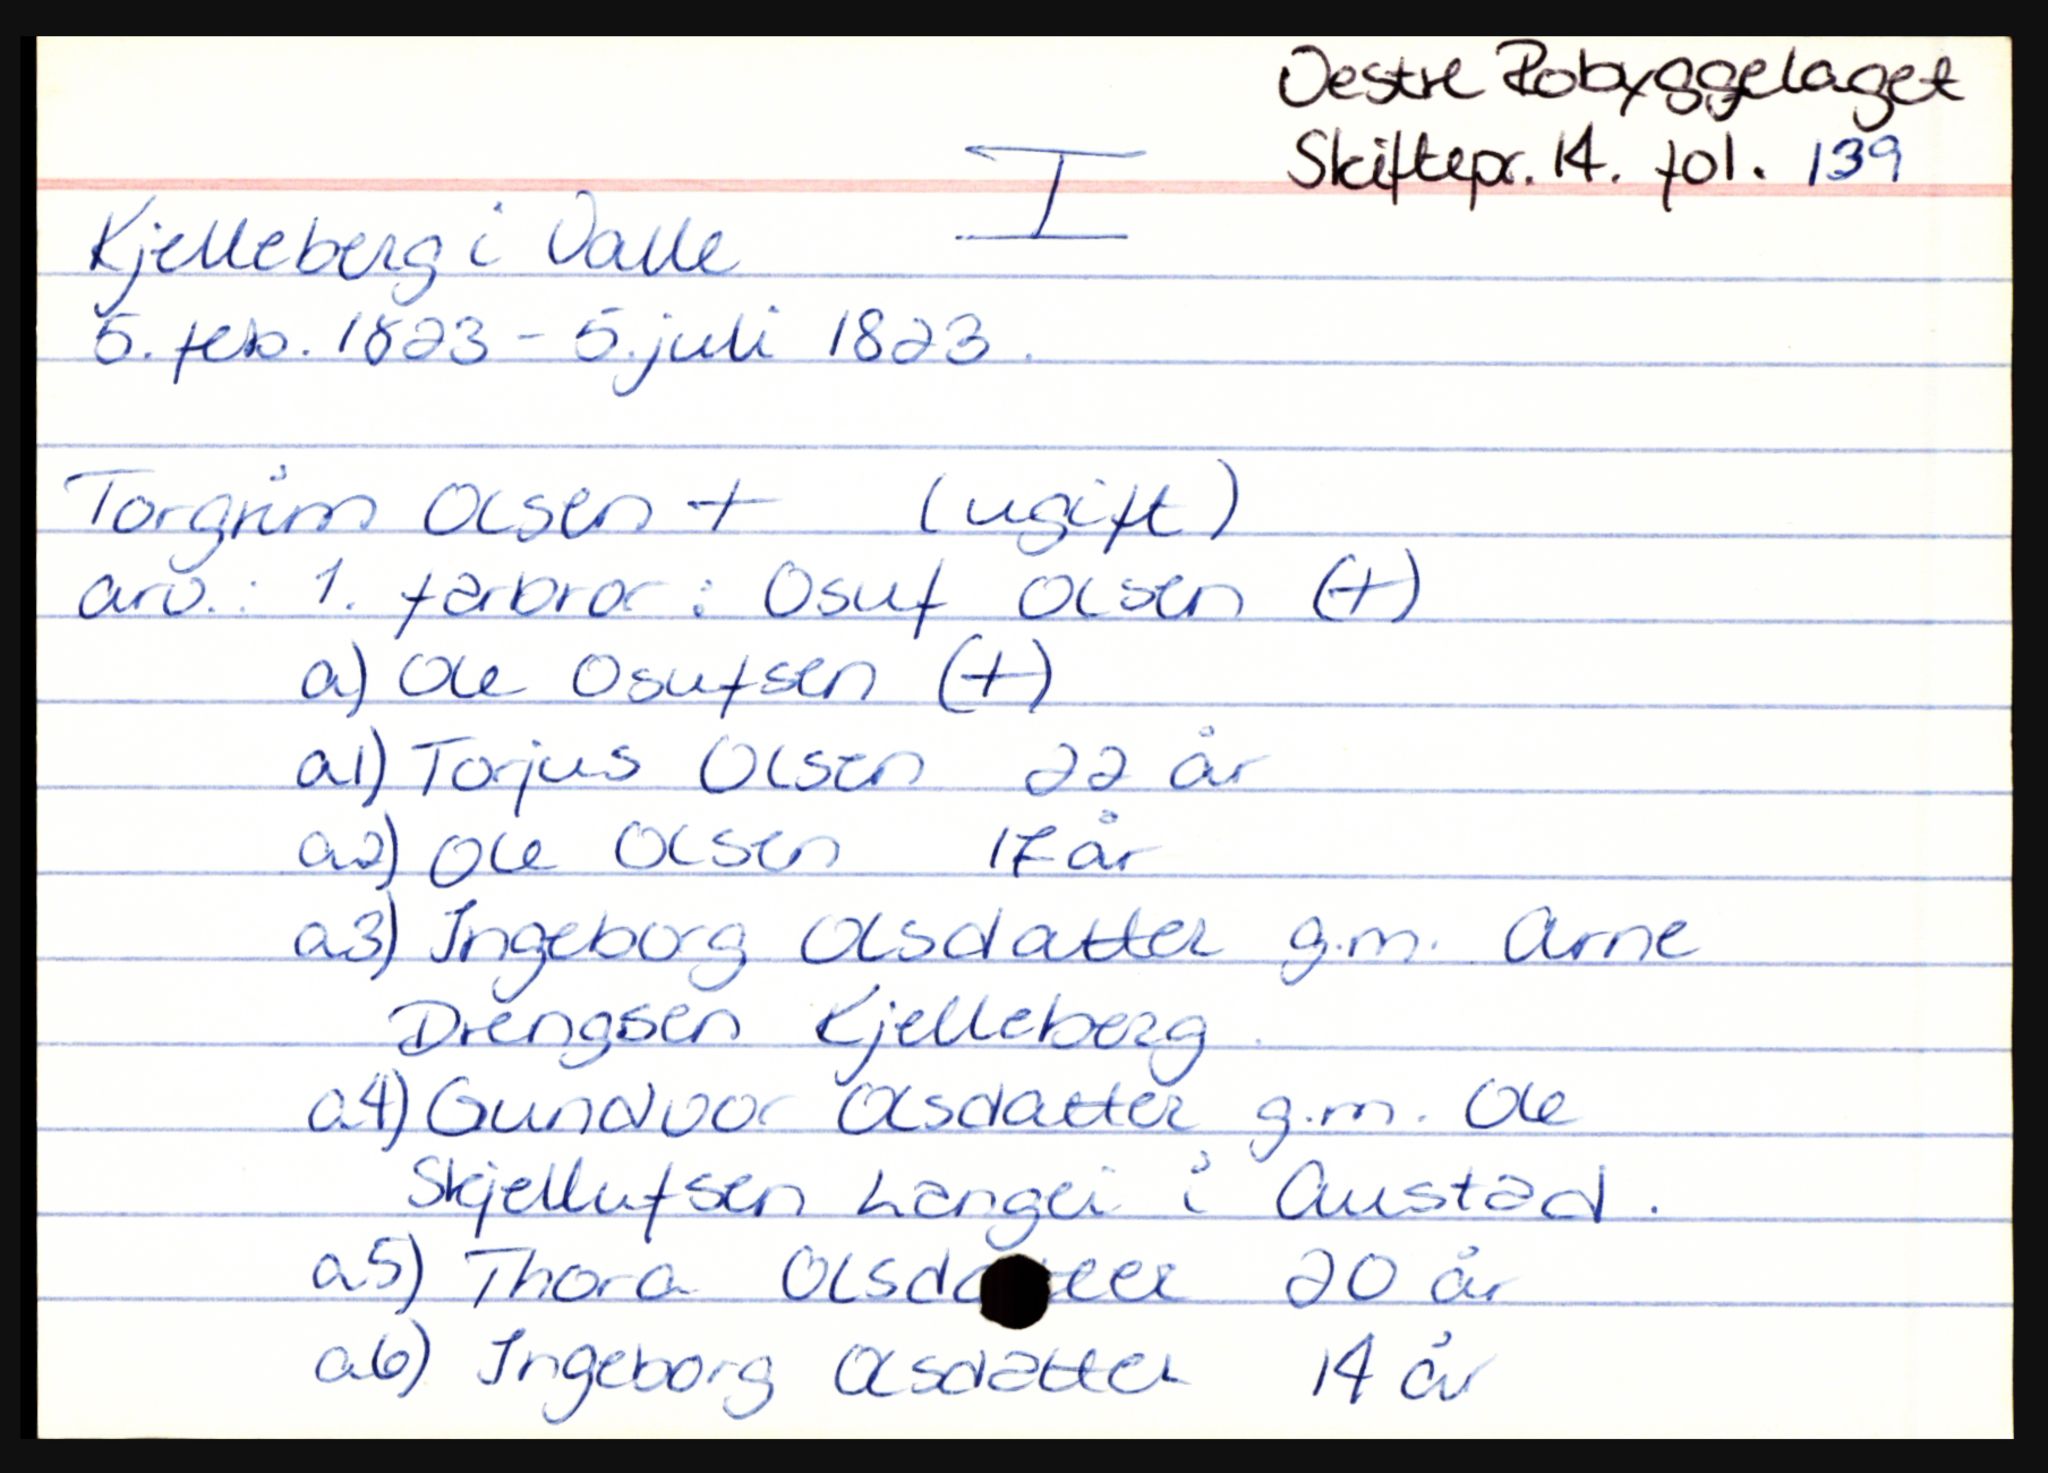 Vestre Robyggelaget
Skiftepr. 14. fol. 139
I
Kjelleberg i Valle
5. feb. 1823 - 5. juli 1823.
Torgrim Olsen + (ugift)
arv.: 1. farbror: Osuf Olsen (+)
a) Ole Osufsen (+)
a1) Torjus Olsen 22 år
a2) Ole Olsen 17 år
a3) Ingeborg Olsdatter g.m. Arne
Drengsen Kjelleberg.
a4) Gundvor Olsdatter g.m. Ole
Skjellufsen Langei i Austad.
a5) Thora Olsdatter 20 år
a6) Ingeborg Olsdatter 14 år